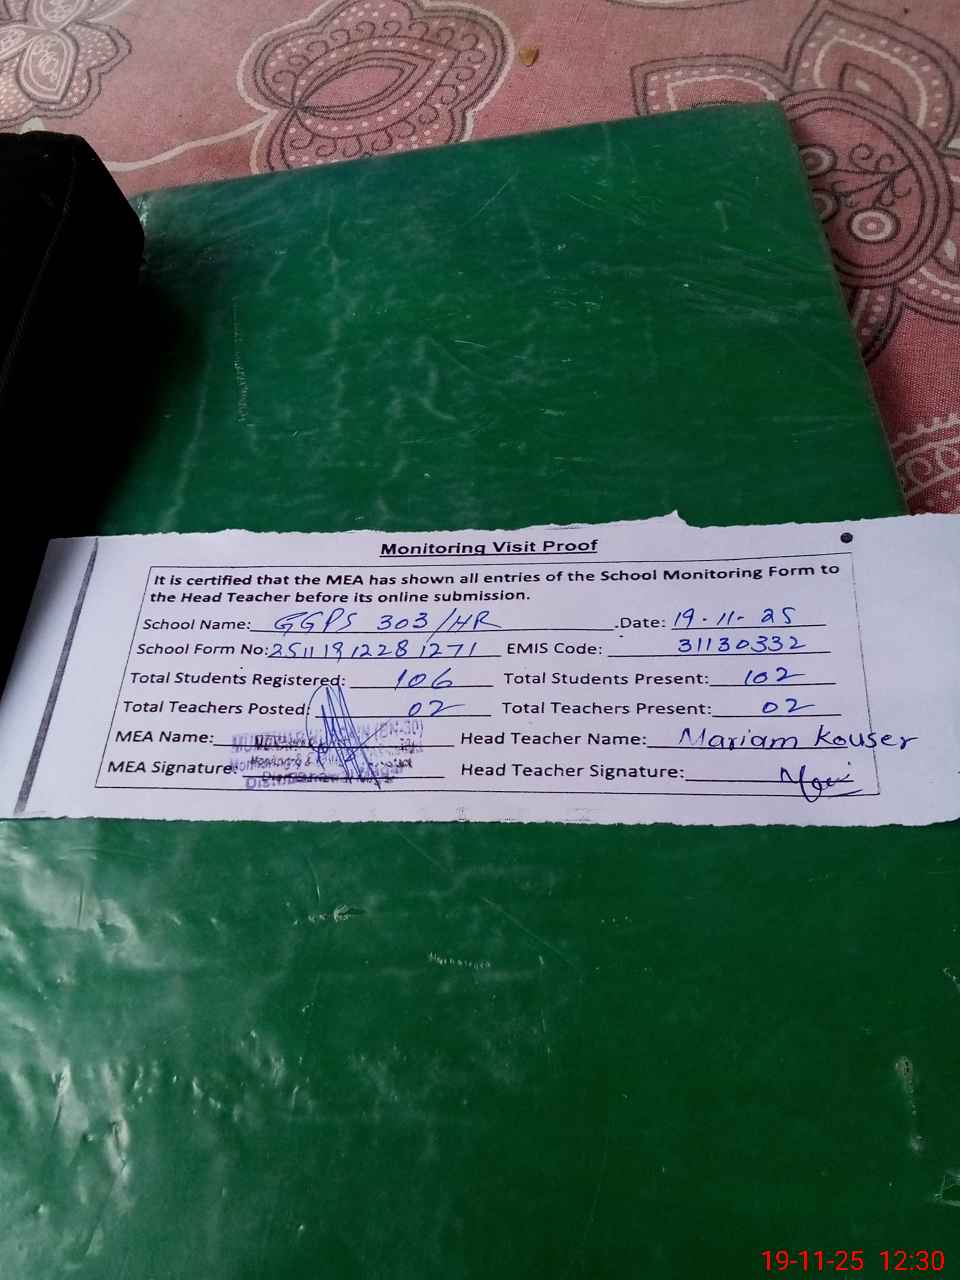 Monitoring Visit Proof
It is certified that the MEA has shown all entries of the School Monitoring Form to
the Head Teacher before its online submission.
School Name: GGPS 303/HR .Date: 19-11-25
School Form No: 25111912281271 EMIS Code: 31130332
Total Students Registered: 106 Total Students Present: 102
Total Teachers Posted: 02 Total Teachers Present: 02
MEA Name: Head Teacher Name: Mariam Kouser
MEA Signature: Head Teacher Signature:
19-11-25 12:30